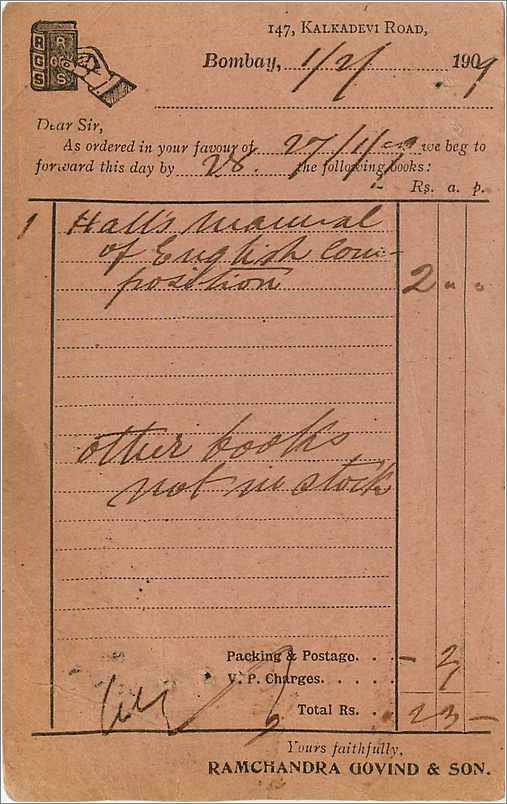 R
G
S
R
G
S
147, KALKADEVI ROAD,
Bombay, 1/2/ 1909
Dear Sir,
As ordered in your favour of 27/1/09 we beg to
forward this day by the following books:
Rs. a. p.
1 Hall's manual
of English Com-
position 2 " "
other books
not in stock
Packing & Postage. . . — 3
V. P. Charges. . . . . .
Total Rs. . . 2 3 —
Yours faithfully,
RAMCHANDRA GOVIND & SON.